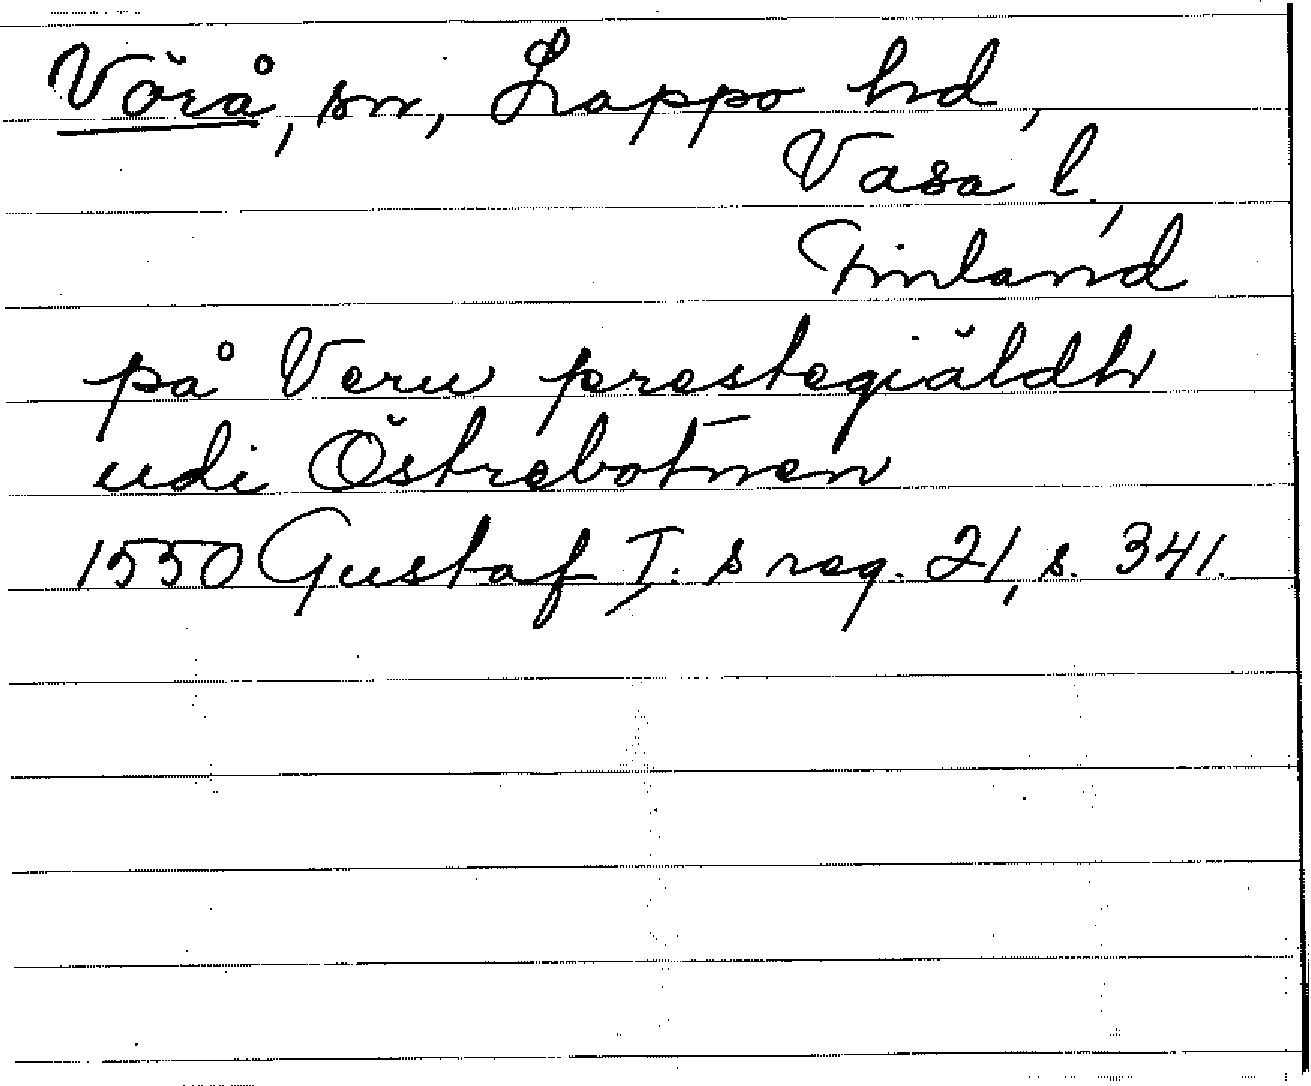 Vörå, sn, Lappo hd,
Vasa l.,
Finland
på Veru prestegiäldh
udi Östrebotnen
1550 Gustaf I:s reg. 21, s. 341.